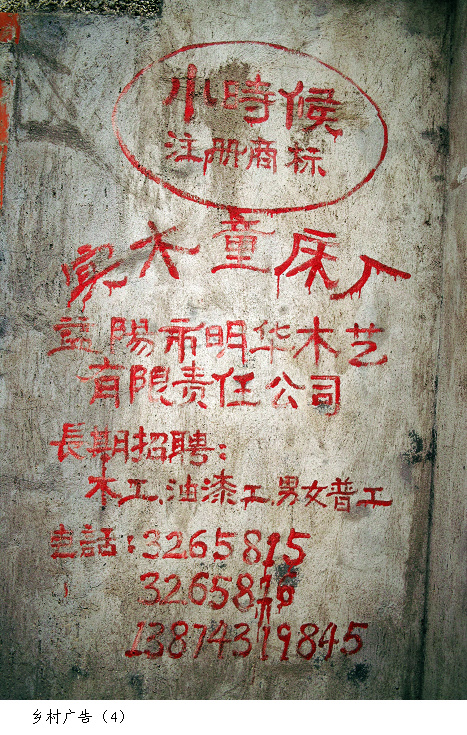 小時候
注册商标
实木童床厂
益陽市明华木艺
有限责任公司
長期招聘:
木工、油漆工、男女普工
電話:3265815
13874319845
乡村广告（4）